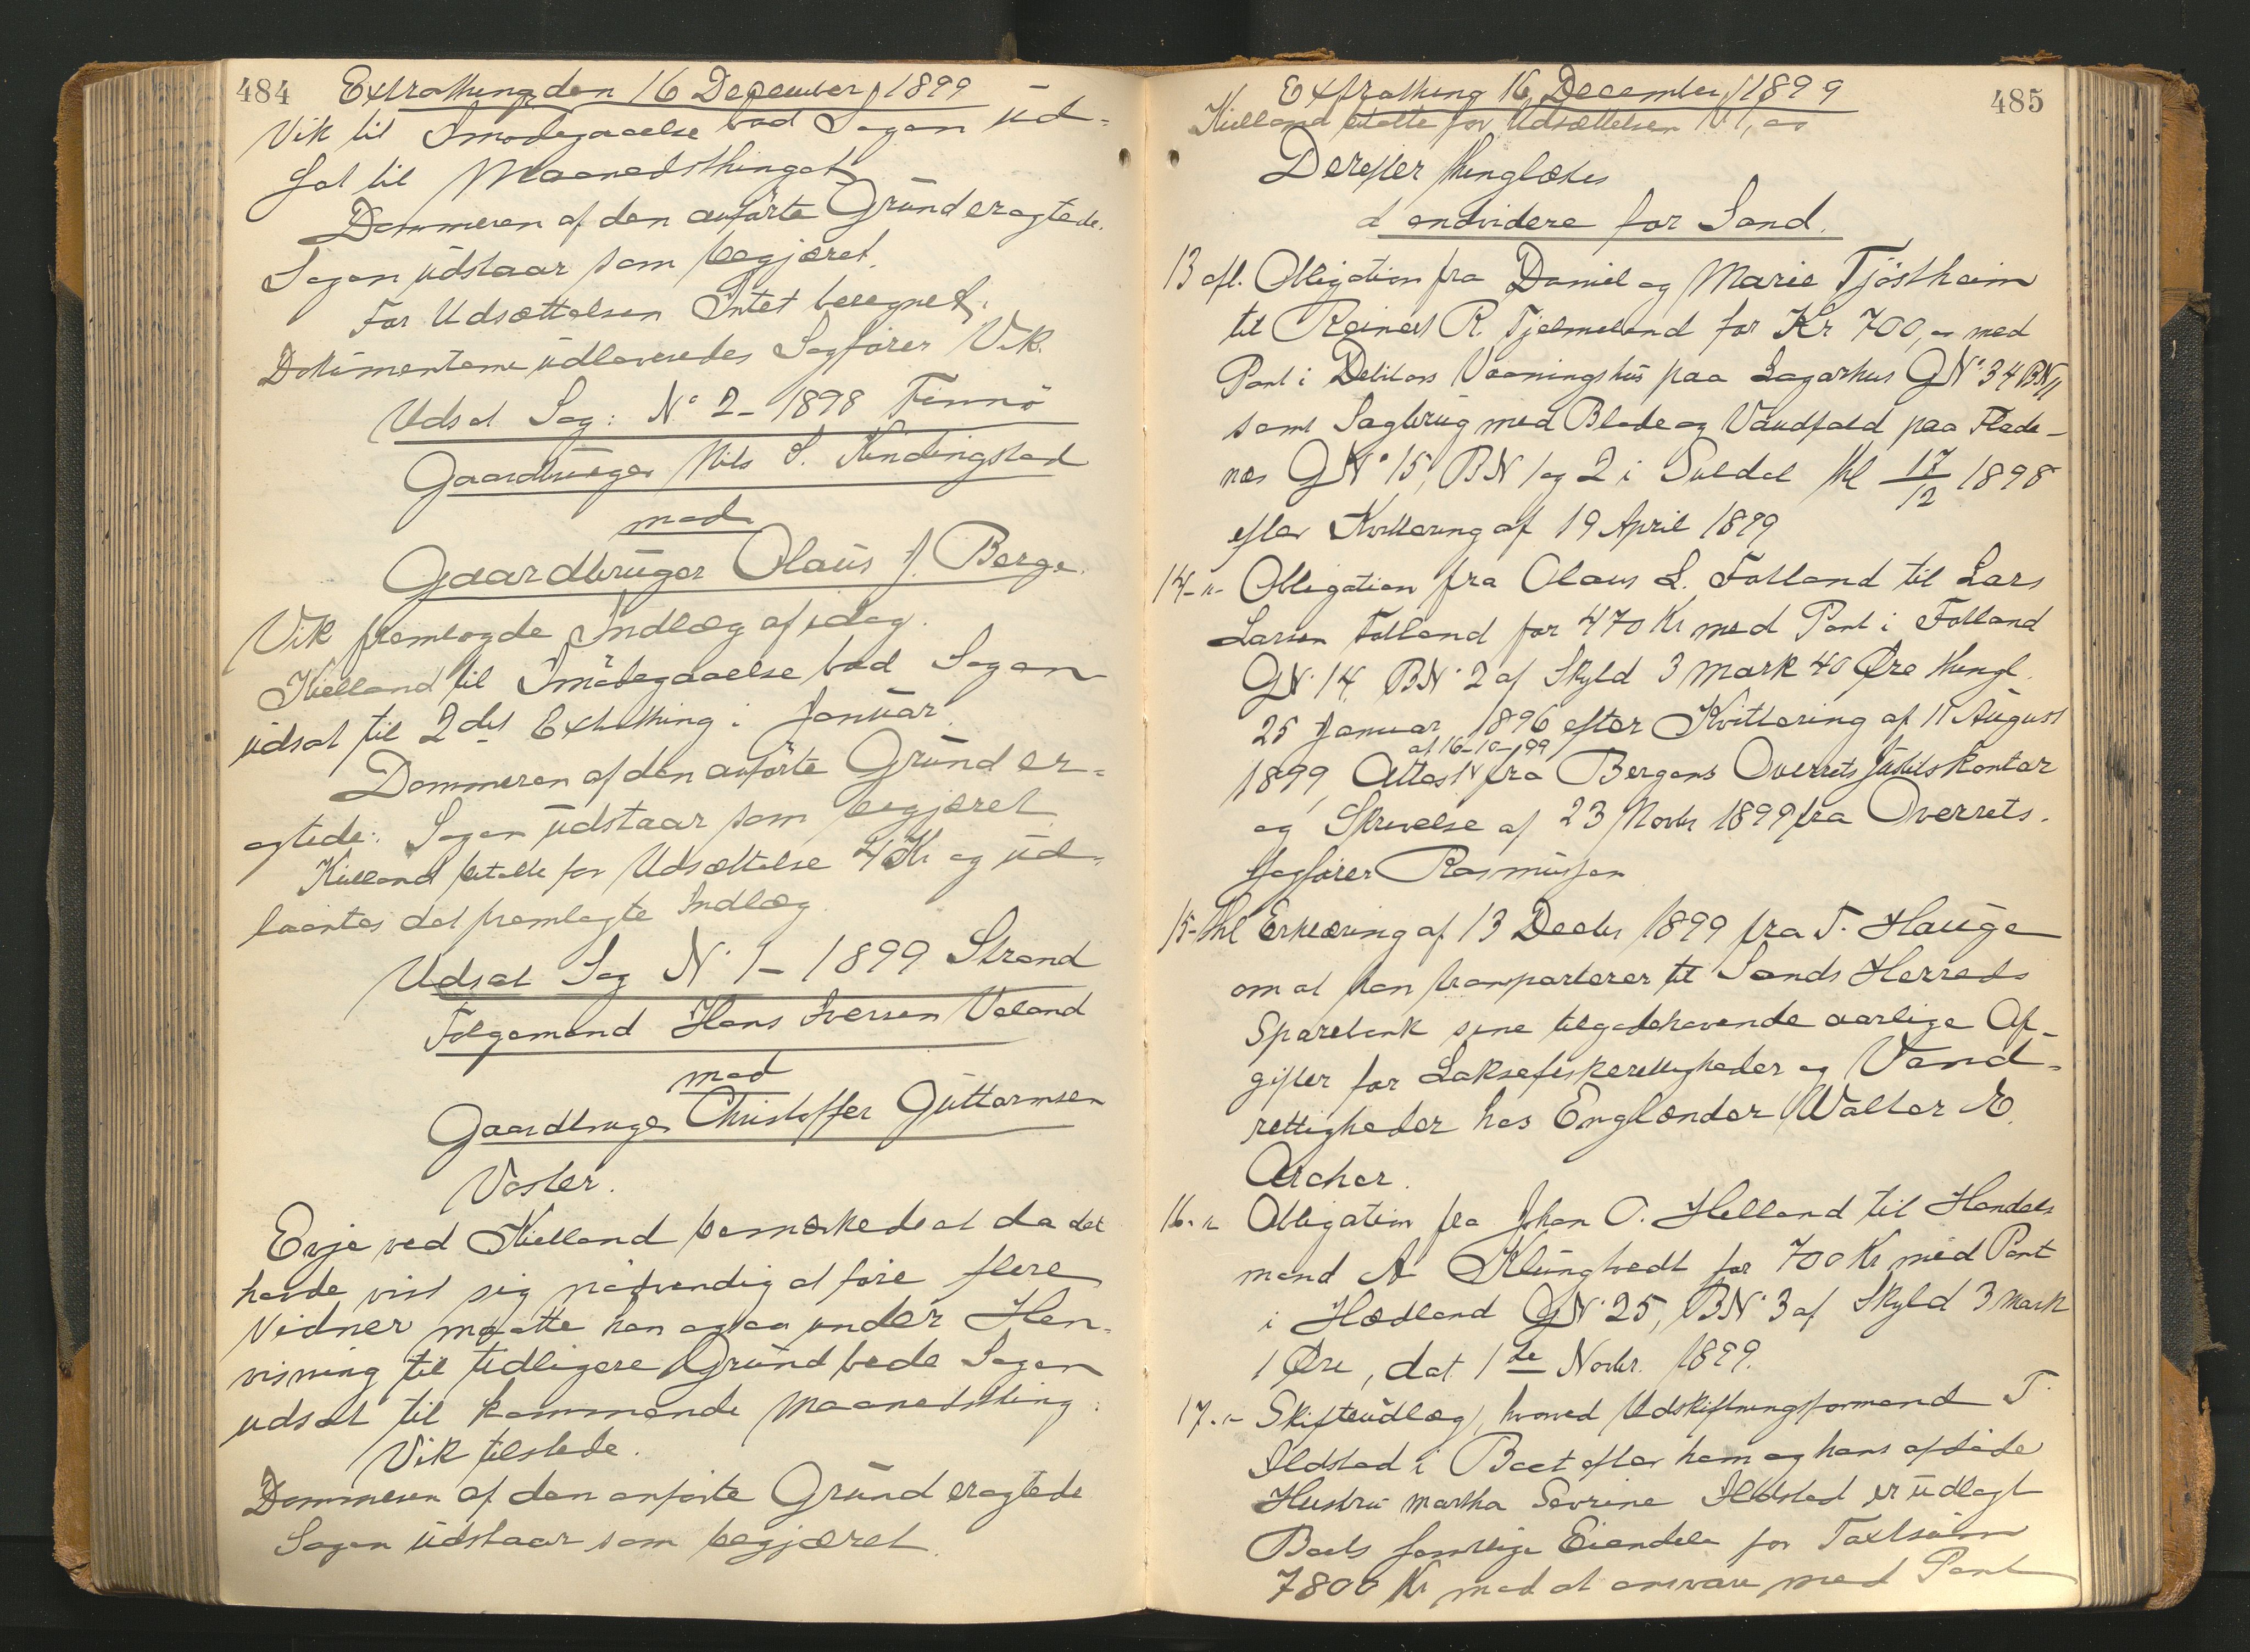 484 Extrathing den 16 December 1899
Vik til Imødegaaelse bad Sagen ud-
sat til Maanedsthinget
Dommeren af den anførte Grund eragtede.
Sagen udstaar som begjæret.
For Udsættelsen Intet beregnet.
Dokumenterne udleveredes Sagfører Vik.
Udsat Sag: No 2 - 1898 Finnö
Gaardbruger Nils S. Kindingstad
mod
Gaardbruger Olaus J. Berge.
Vik fremlagde Indlæg af idag.
Kielland til Imødegaaelse bad Sagen
udsat til 2det Extrathing i Januar.
Dommeren af den anførte Grund er-
agtede: Sagen udstaar som begjæret
Kielland betalte for Udsættelse 4 Kr og ud-
laantes det fremlagte Indlæg
Udsat Sag No 1 - 1899 Strand
Følgemand Hans Iversen Veland
mod
Gaardbruger Christoffer Guttormsen
Voster.
Evje ved Kielland bemærkede at da det
havde vist sig nødvendig at føre flere
Vidner maatte han ogsaa under Hen-
visning til tidligere Grund bede Sagen
udsat til kommende Maanedsthing.
Vik tilstede.
Dommeren af den anførte Grund eragtede
Sagen udstaar som begjæret.
Extrathing 16 December 1899 485
Kielland betalte for Udsættelsen
Derefter thinglæstes
d endvidere for Sand.
13 afl. Obligation fra Daniel og Marie Tjöstheim
til Reinert R. Tjelmeland for Kr 700,- med
Pant i Debitors Vaaningshus paa Lagarhus GN° 34 BN 11
samt Sagbrug med Blade og Vandfald paa Flade-
næs GN° 15, BN 1 og 2 i Suldal thl 17/12 1898
efter Kvittering af 19 April 1899
14 -"- Obligation fra Olaus L. Folland til Lars
Larsen Folland for 470 Kr med Pant i Folland
GN° 14 BN° 2 af Skyld 3 Mark 40 Øre thingl.
25 Januar 1896 efter Kvittering af 11 August
af 16-10-99
1899, Attest fra Bergens Overrets Justitskontor
og Skrivelse af 23 Novbr 1899 fra Overrets-
sagfører Rasmussen
15 - thl Erklæring af 13 Decbr 1899 fra T. Hauge
om at han transporterer til Sands Herreds
Sparebank sine tilgodehavende aarlige Af-
gifter for Laksefiskerettigheder og Vand-
rettigheder hos Englænder Walter E.
Archer.
16. " Obligation fra Johan O. Helland til Handels
mand A Klungtvedt for 700 Kr med Pant
i Hædland GN° 25, BN° 3 af Skyld 3 Mark
1 Øre, dat 1ste Novbr. 1899.
17. " Skifteudlæg, hvorved Udskiftningsformand T.
Ildstad i Boet efter ham og hans afdøde
Hustru Martha Sevrine Ildstad er udlagt
Boets samtlige Eiendele for Taxtsum
7800 Kr mod at ansvare med Pant